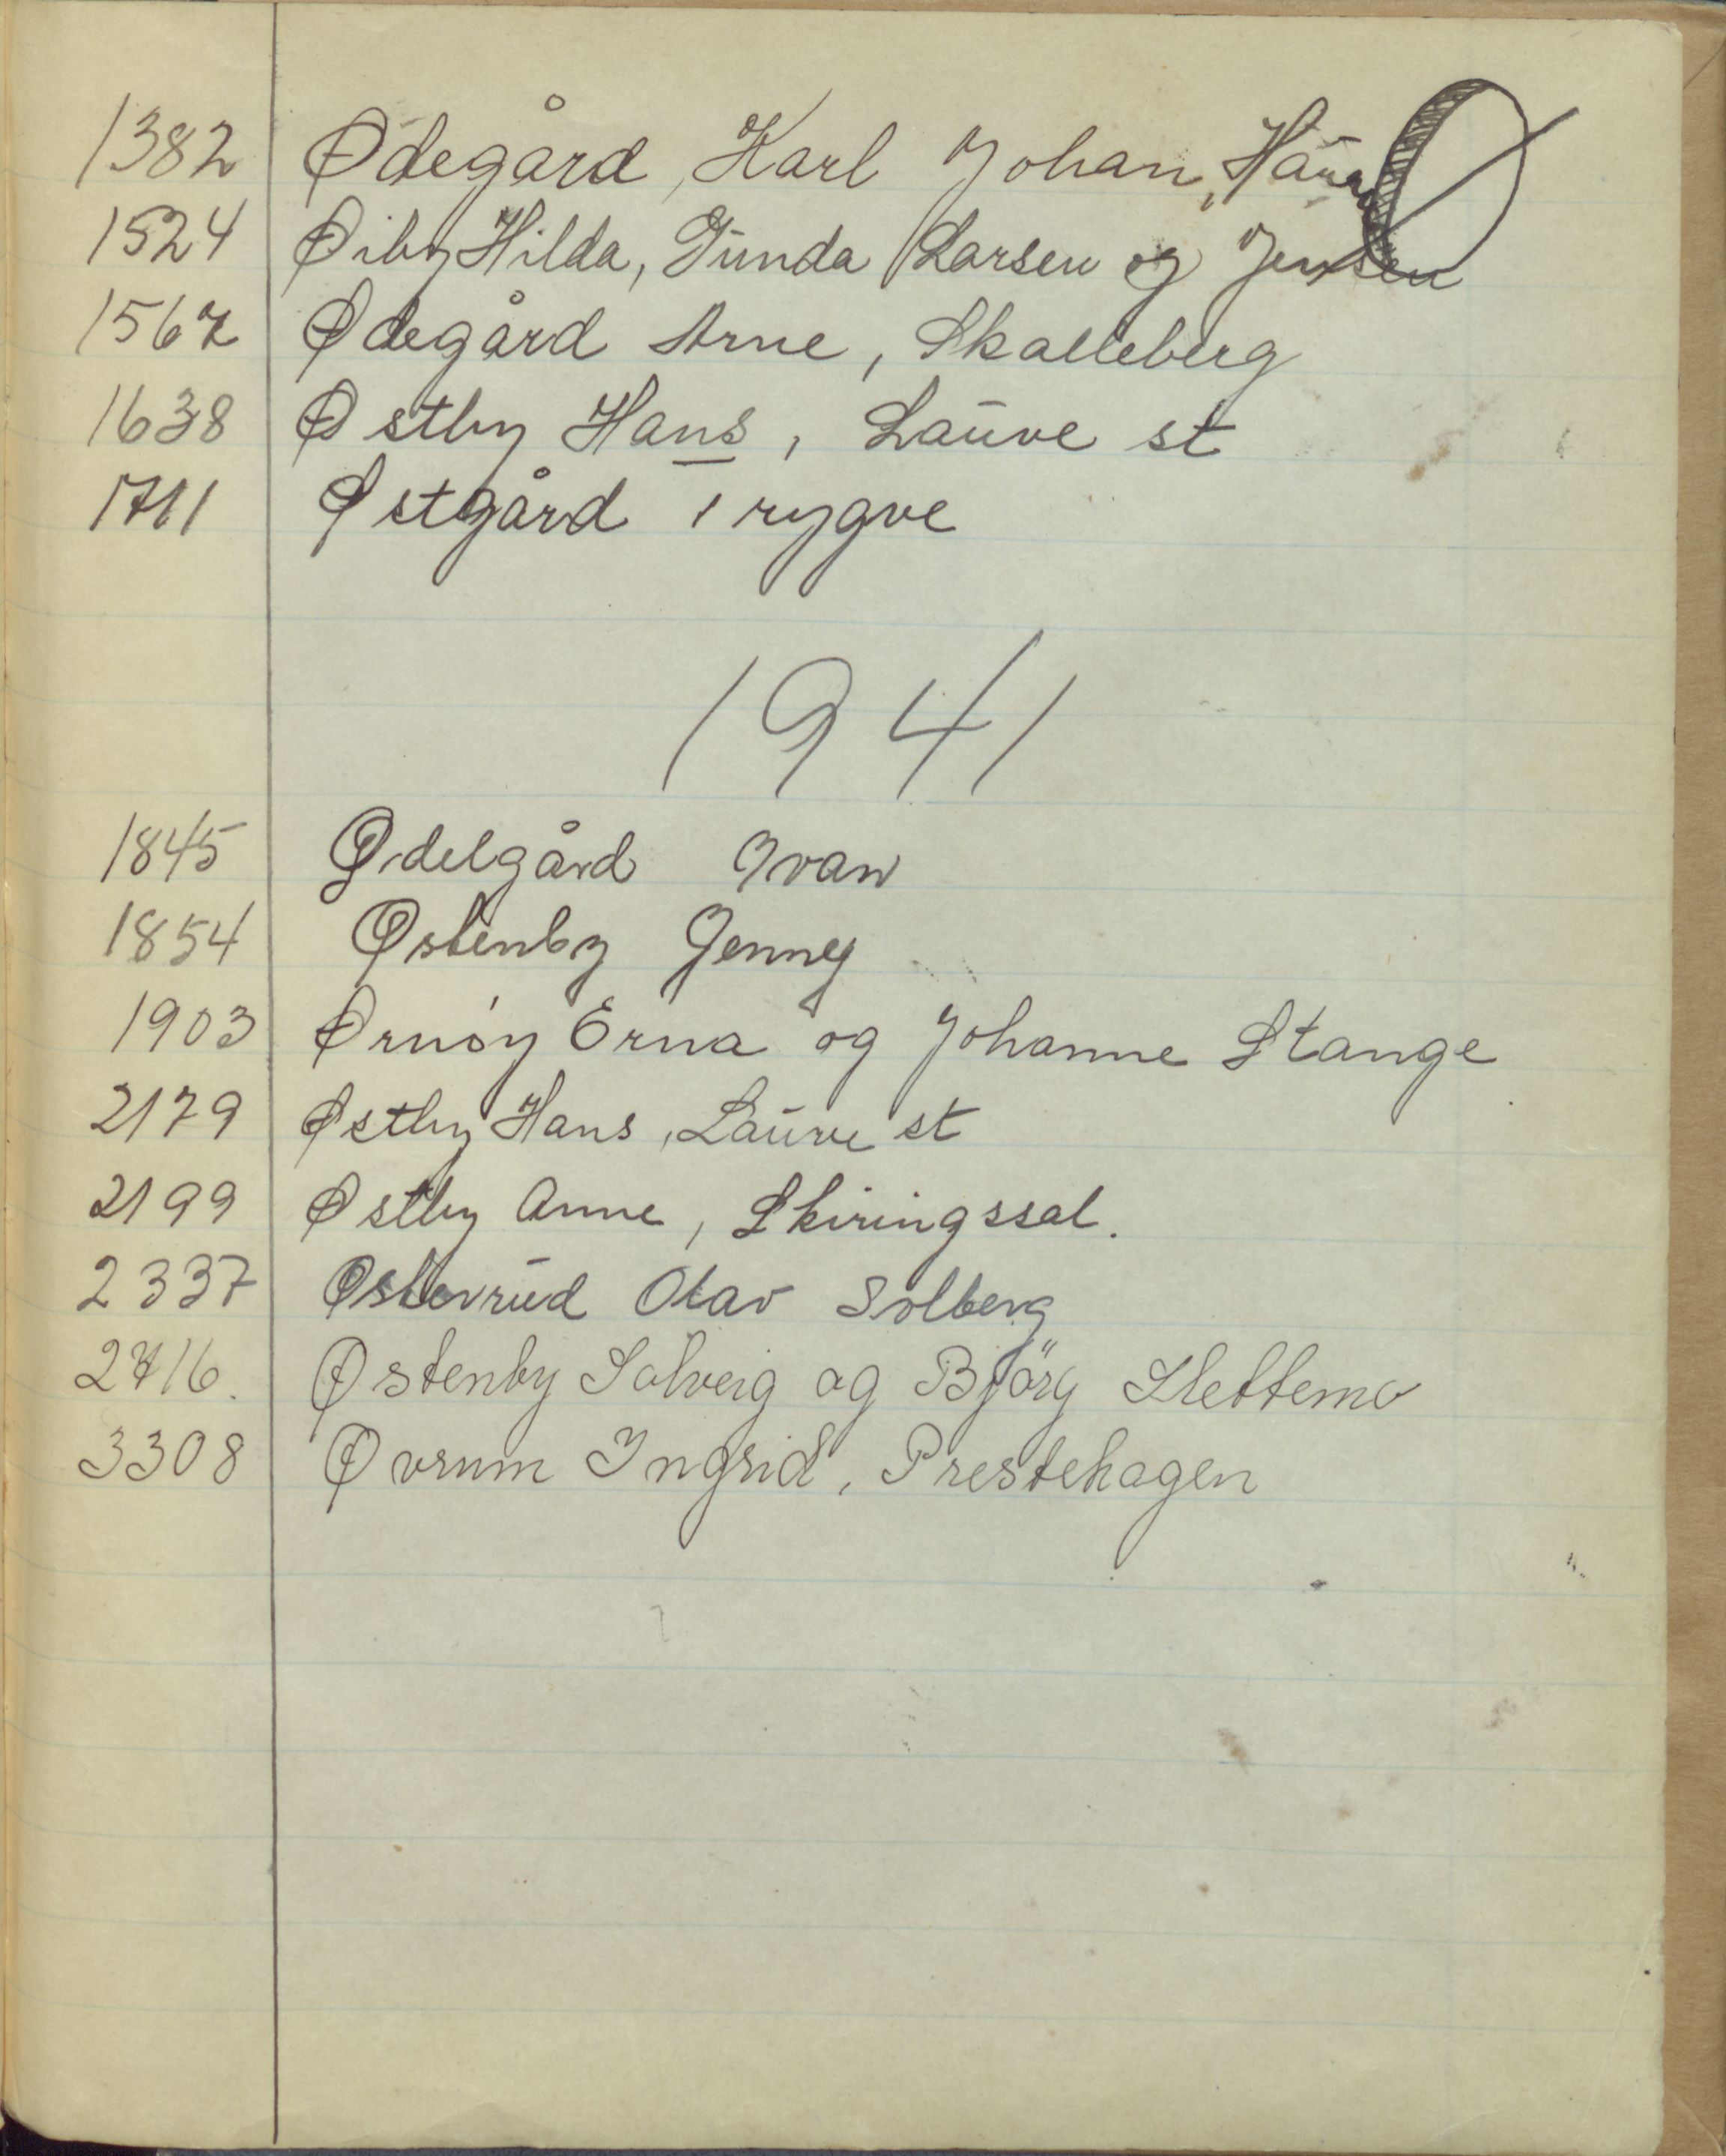 Ø
1382 Ødegård, Karl Johan,
1524 Øiby Hilda, Gunda Larsen og Jensen
1567 Ødegård Arne, Skalleberg
1638 Østby Hans, Lauve st
1711 Østgård Trygve
1941
1845 Ødelgård Ivan
1854 Østenby Jenny
1903 Ørnøy Erna og Johanne Stange
2179 Østby Hans, Lauve st
2199 Østby Anne, Skiringssal.
2337 Østerud Olav Solberg
2716. Østenby Solveig og Björg Slettemo
3308 Øvrum Ingrid, Prestehagen